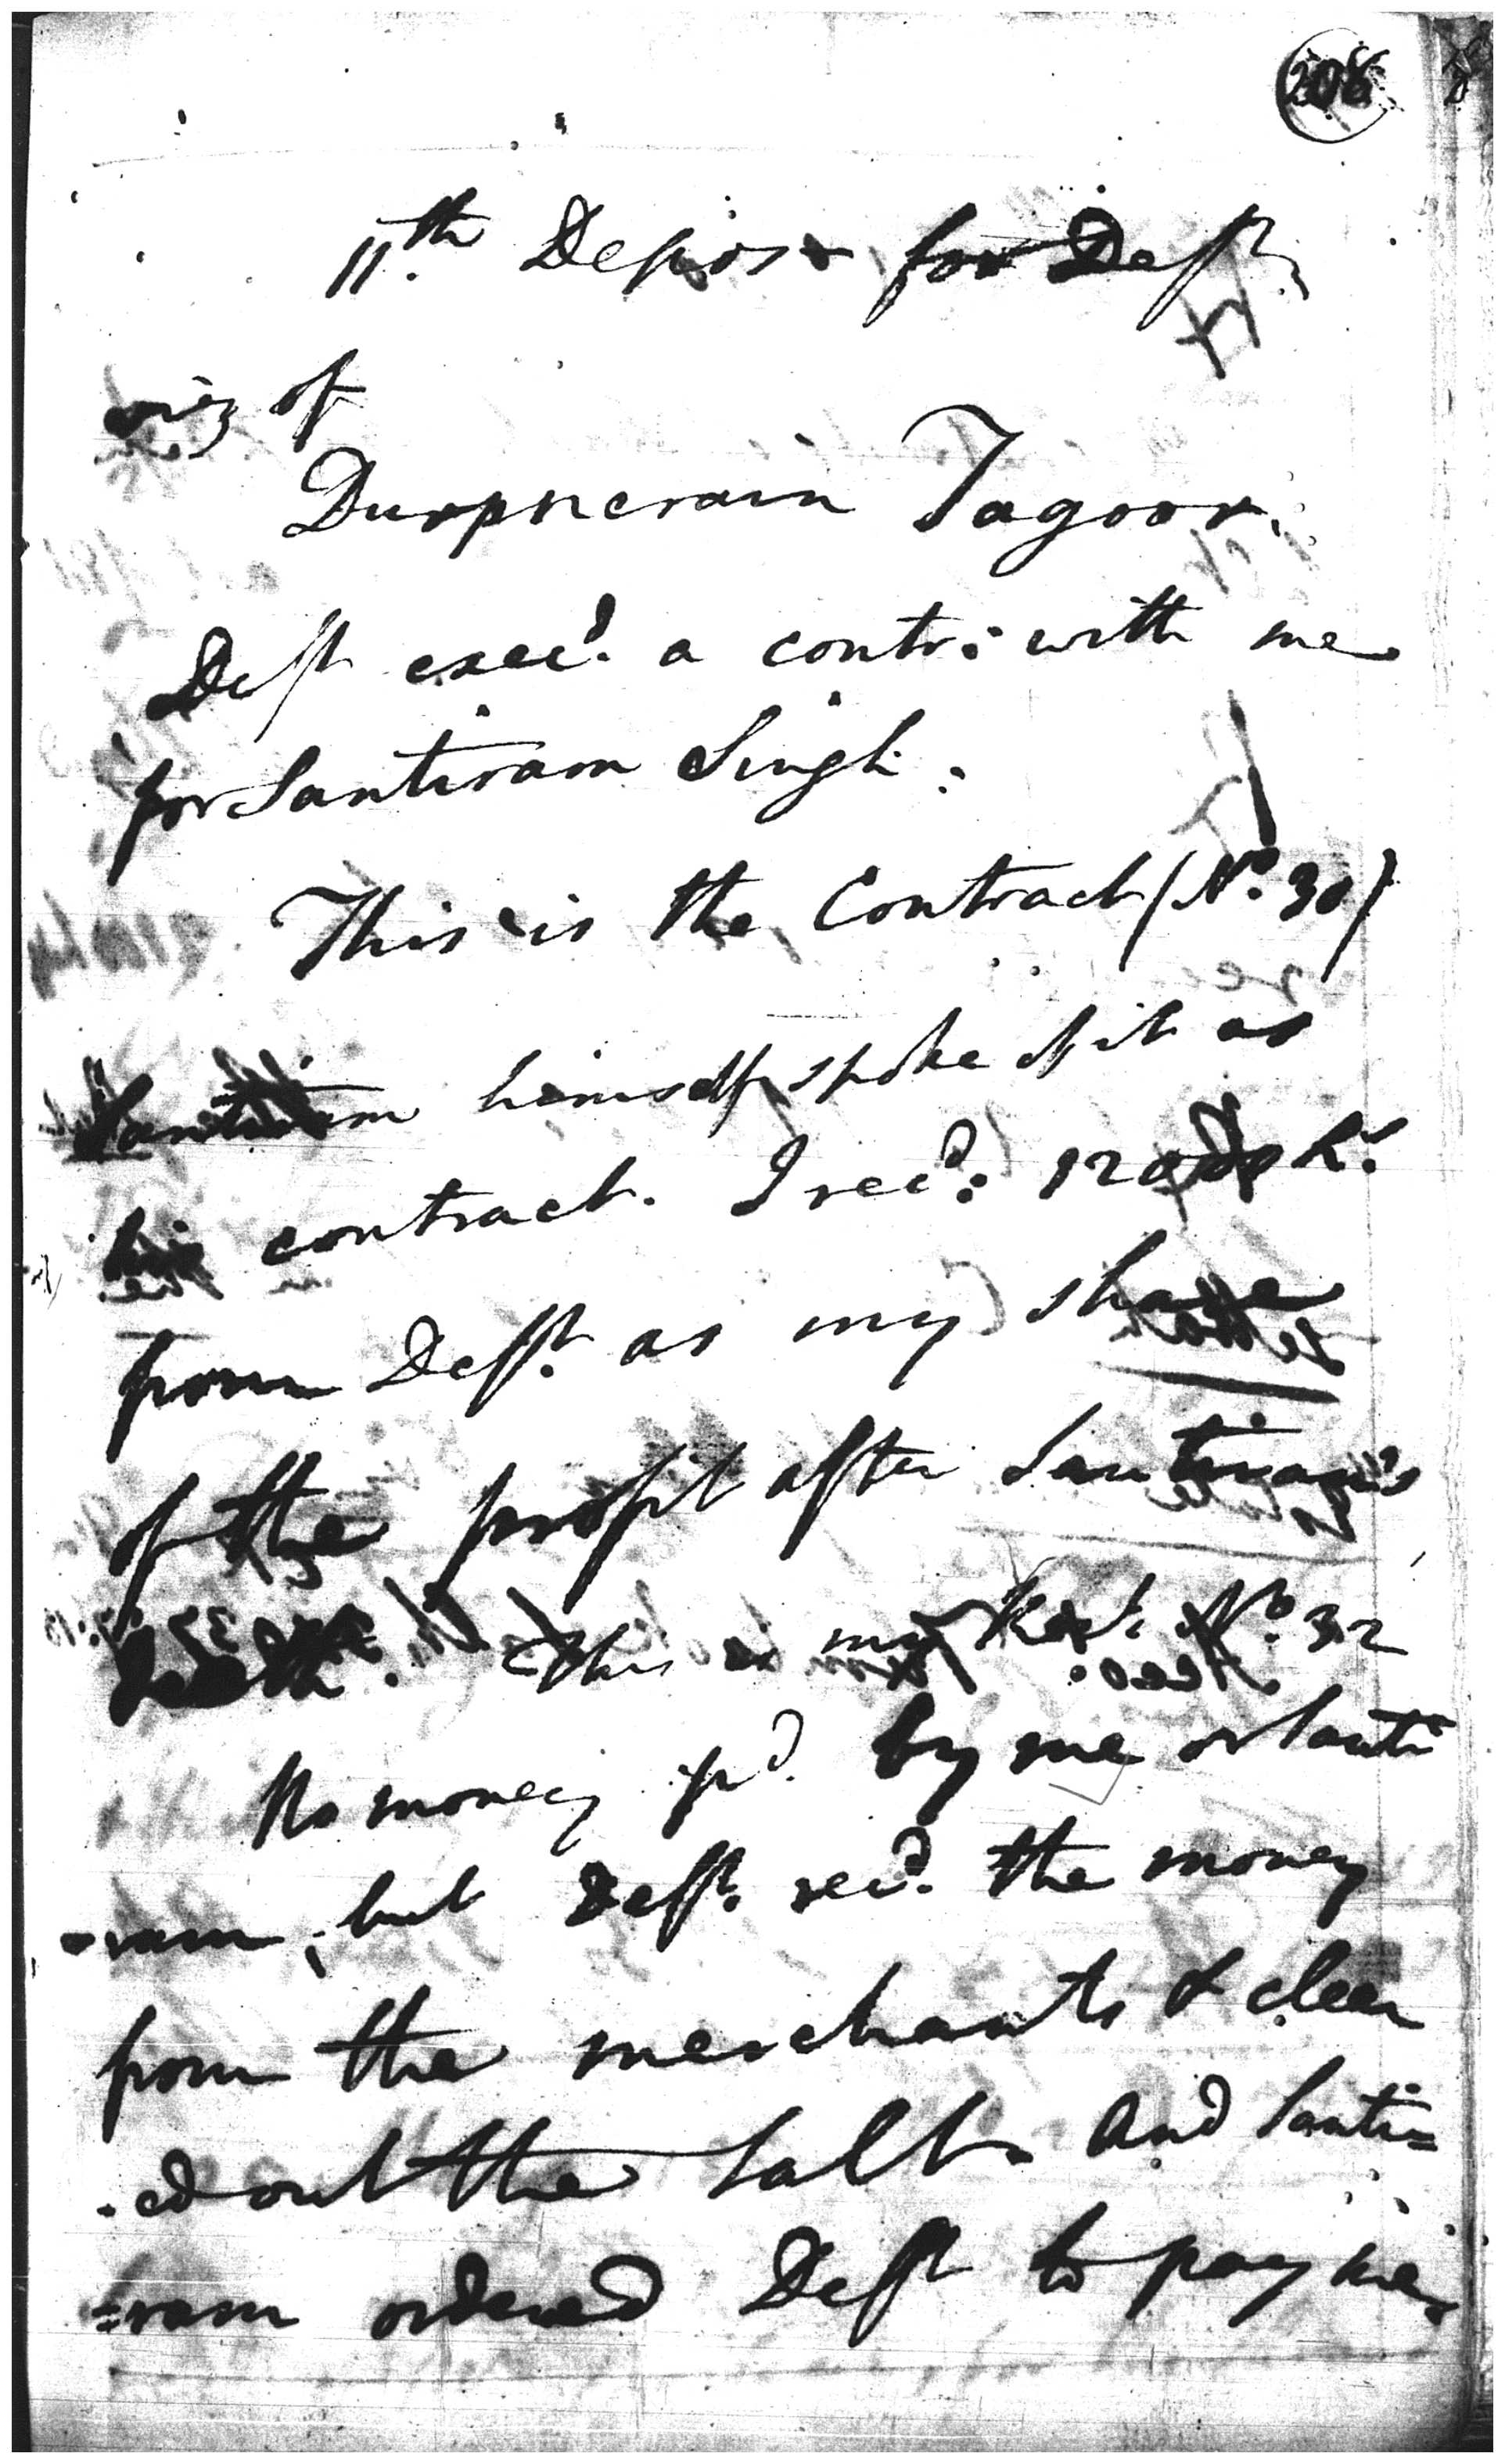 208
11.th Depos.n for Deft,
viz of
Durpnerain Tagoor.
Deft exec.d a contr: with me
for Santiram Singh.
This is the Contract (No. 30)
Santiram himself spoke of it as
his contract. I rec.d: Rs.
from Deft. as my share
of the profit after Santiram's
death. This is my Rect. No. 32
No money pd. by me or Santi
=ram, but Deft. recd. the money
from the merchants & clear
=ed out the Salt. And Santi=
=ram ordered Deft to pay me